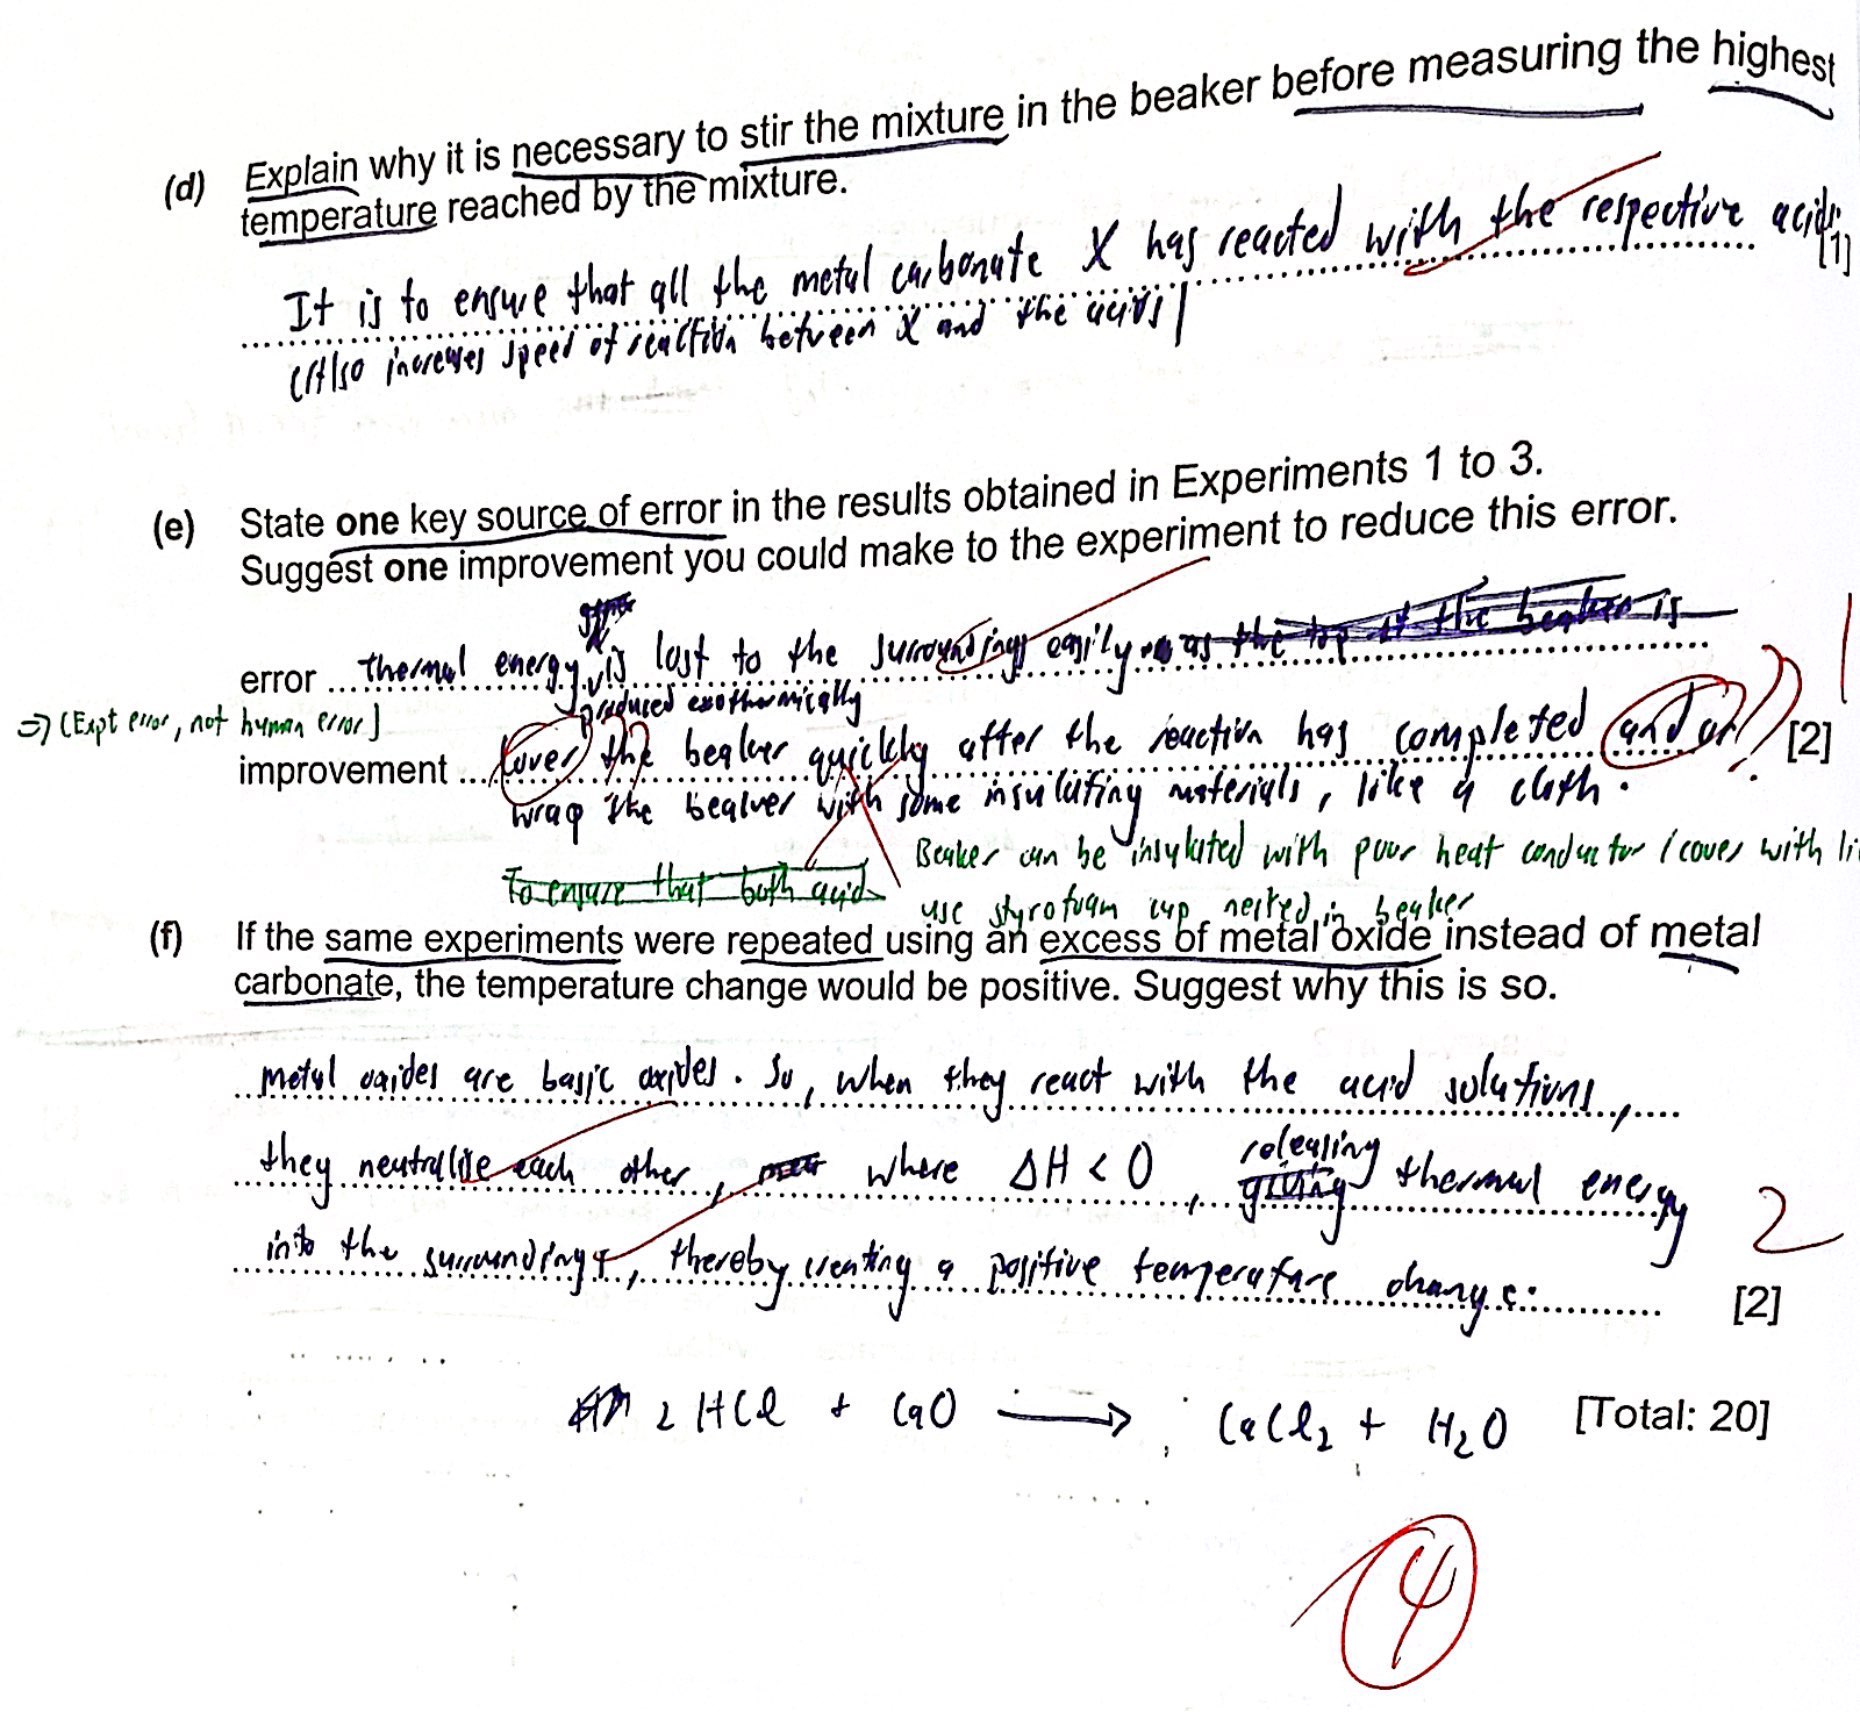 (d) Explain why it is necessary to stir the mixture in the beaker before measuring the highest
temperature reached by the mixture.
It is to ensure that all the metal carbonate X has reacted with the respective acids. [1]
(Also increases speed of reaction between X and the acids)
(e) State one key source of error in the results obtained in Experiments 1 to 3.
Suggest one improvement you could make to the experiment to reduce this error.
error thermal energy is lost to the surroundings easily as the top of the beaker is
produced exothermically
1
=> (Expt error, not human error)
improvement Cover the beaker quickly after the reaction has completed and or ? [2]
wrap the beaker with some insulating materials, like a cloth.
Beaker can be insulated with poor heat conductor / cover with li
To ensure that both acid
use styrofoam cup nested in beaker
(f) If the same experiments were repeated using an excess of metal oxide instead of metal
carbonate, the temperature change would be positive. Suggest why this is so.
Metal oxides are basic oxides. So, when they react with the acid solutions,
they neutralise each other, where ΔH < 0, releasing giving thermal energy
2
into the surroundings, thereby creating a positive temperature change. [2]
2 HCl + CaO → CaCl₂ + H₂O [Total: 20]
4